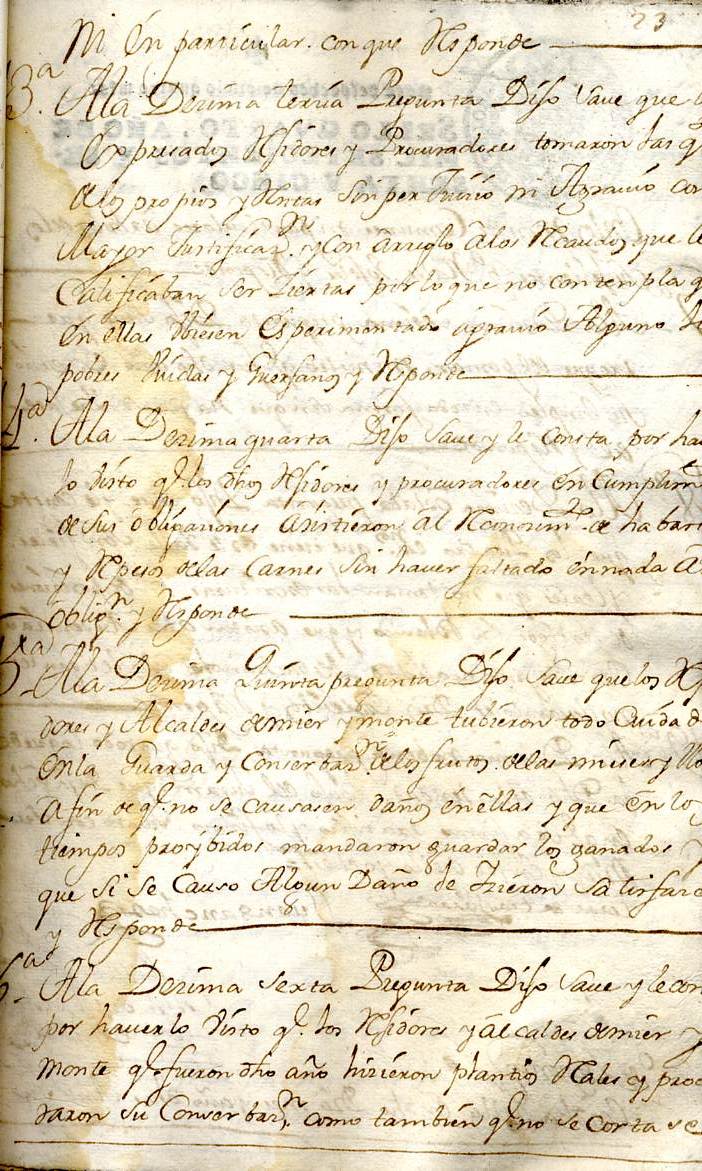 23
Ni En particular. conque Rsponde
3ª. Ala Dezima terzia Pregunta Dijo Save que l
Expresados Rexidores y Procuradores tomaron las q
delos propios y Rentas sin per Juizio ni Agravio con
Mayor Justificazⁿ. y con arreglo âlos Recaudos que le
Calificaban ser Ziertas por lo que no contenpla q
En ellas Ubiesen Esperimentado agravio Alguno
pobres Viudas y Guerfanos y Rsponde
4ª. Ala Dezima quarta Dijo Save y le consta por ha
lo Visto q.e los dhos Rejidores y procuradores en Cumplim
de sus obligaziones asistieron al Reconozimt.o de
y Repeso delas Carnes sin haver faltado en nada
Obligⁿ. y Rsponde
5ª Ala Dezima Quinta pregunta Dijo Save que los Re
dores y Alcaldes demier y monte tubieron todo Cuida d
En la Guarda y Conserbazⁿ. delos frutos delas mieses y
Afin de q.e no se causasen daños en ellas y que en lo
tiempos proybidos mandaron guardar los ganados y
que si se Causo Algun Daño se Izieron satisfaz
y Rsponde
6ª Ala Dezima sexta Pregunta Dijo Save y le con
por haverlo Visto q.e los Rejidores y Alcaldes demier y
monte q.e fueron dho año hizieron plantios Reales y proc
raron su Conserbazⁿ. como tambien q.e no se corta se